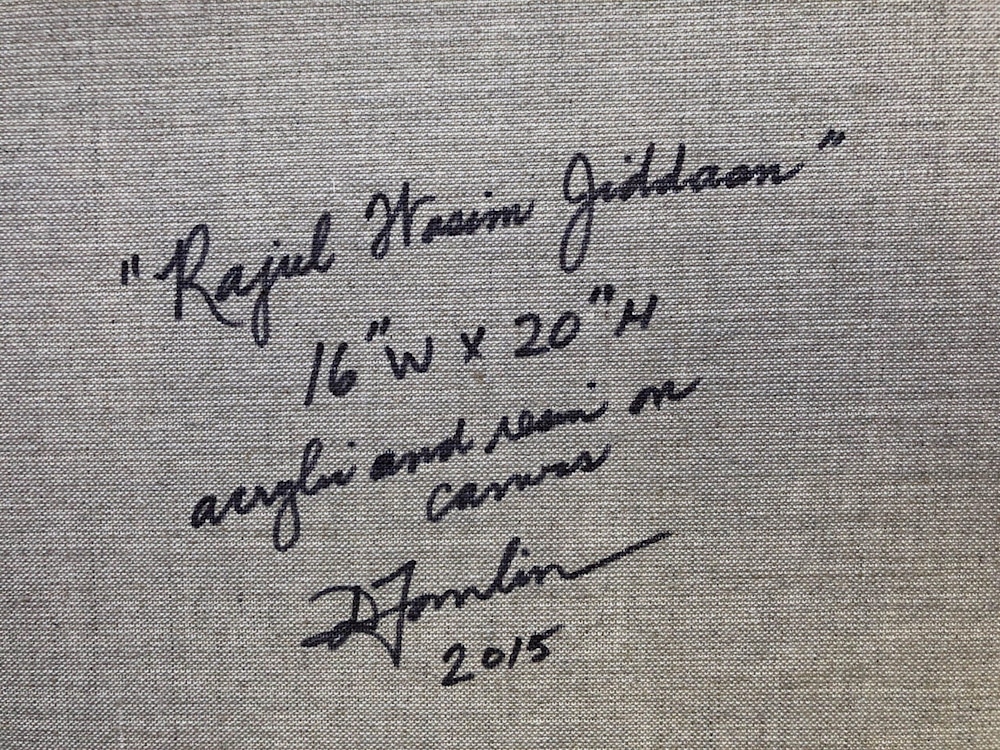 "Rajul Wasim Jiddaan"
16"W x 20"H
acrylic and resin on
canvas
DTomlin
2015